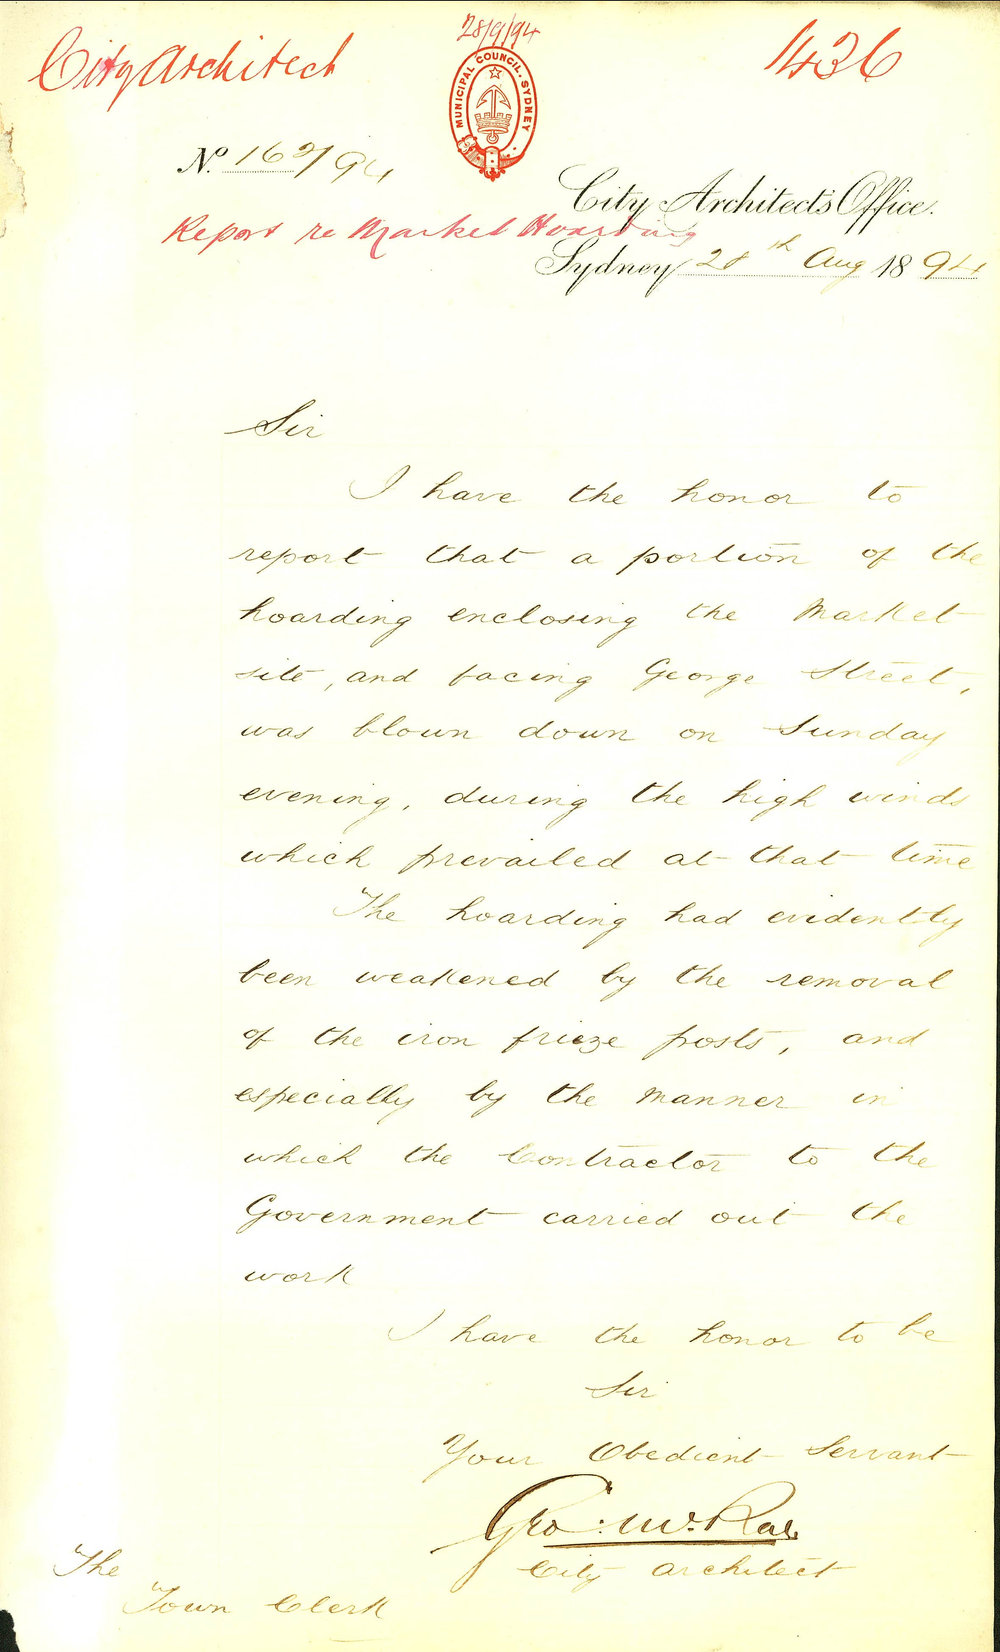 28/9/94
City Architect
1436
MUNICIPAL COUNCIL. SYDNEY
No. 169/94
City Architect's Office.
Report re Market Hoarding
Sydney 28th Aug 1894
Sir
I have the honor to
report that a portion of the
hoarding enclosing the Market
site, and facing George Street,
was blown down on Sunday
evening, during the high winds
which prevailed at that time
The hoarding had evidently
been weakened by the removal
of the iron frieze posts, and
especially by the manner in
which the Contractor to the
Government carried out the
work
I have the honor to be
Sir
Your Obedient Servant
Geo: McRae
City Architect
The
Town Clerk